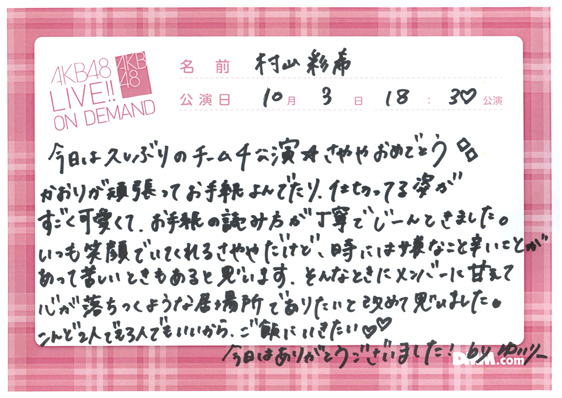 AKB48
LIVE!!
ON DEMAND
AKB
48
名前 村山彩希
公演日 10月 3日 18:30公演
今日は久しぶりのチーム4公演★さややおめでとう
かおりが頑張ってお手紙よんでたり、仕切ってる姿が
すごく可愛くて、お手紙の読み方が丁寧でじーんときました。
いつも笑顔でいてくれるさややだけど、時には嫌なこと辛いことが
あって苦しいときもあると思います。そんなときにメンバーに甘えて
心が落ちつくような居場所でありたいと改めて思いました。
こんど2人でも3人でもいいから、ご飯にいきたい♡♡
今日はありがとうございました! by ゆいりー
DMM.com